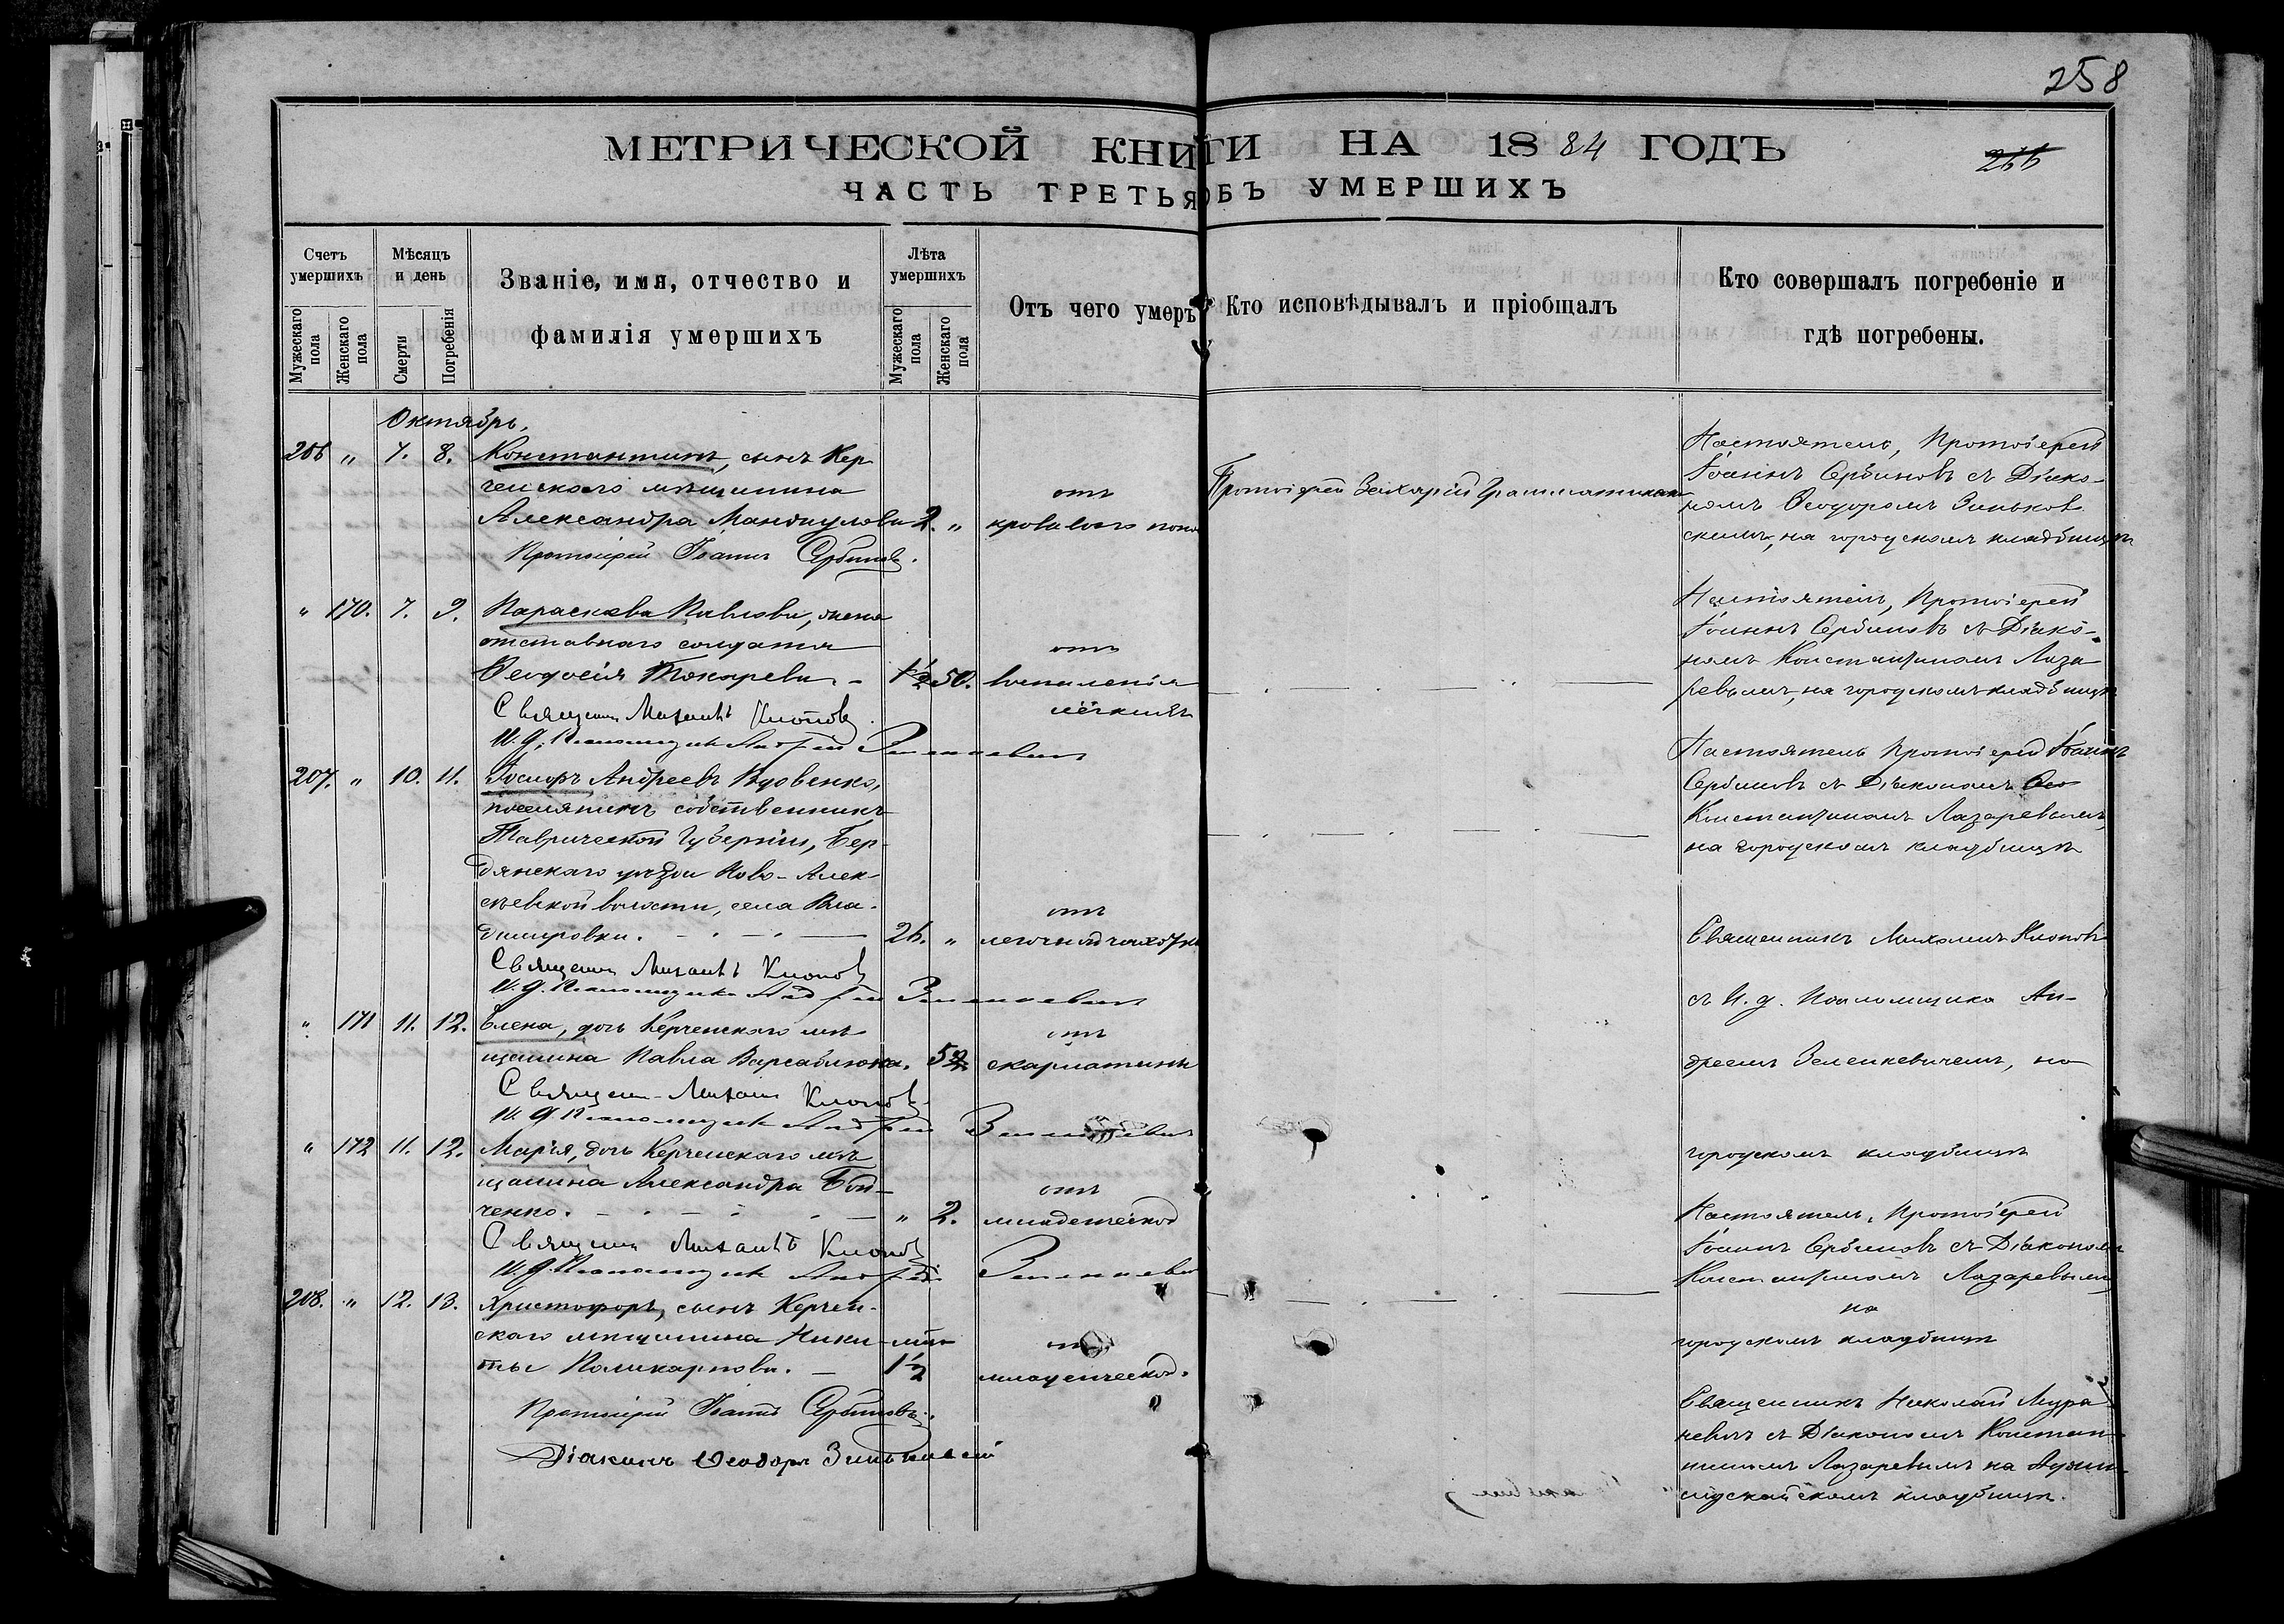 258
МЕТРИЧЕСКОЙ КНИГИ НА 1884 ГОДЪ
ЧАСТЬ ТРЕТЬЯ ОБЪ УМЕРШИХЪ
Счетъ умершихъ
Мужескаго пола
Женскаго пола
Мѣсяцъ и день
Смерти
Погребенія
Званіе, имя, отчество и
фамилія умершихъ
Лѣта умершихъ
Мужескаго пола
Женскаго пола
Отъ чего умеръ
Кто исповѣдывалъ и пріобщалъ
Кто совершалъ погребеніе и
гдѣ погребены.
Октябрь.
206 „ 7. 8. Константинъ, сынъ Кер
ченскаго мѣщанина
Александра 2. „
отъ
Протоіерей Іоаннъ Сербиновъ.
Протоіерей Захарій
Настоятель, Протоіерей
Іоаннъ Сербиновъ съ Діако-
номъ Ѳеодоромъ Зиньков
скимъ, на городскомъ кладбищѣ
„ 170. 7. 9. Параскева Павлова, жена
отставнаго солдата
Ѳеодосія Токарева 50.
отъ
воспаленія
лёгкихъ
Священникъ Михаилъ Клоповъ
И. д. Псаломщика Андрей Зеленкевичъ
Настоятель, Протоіерей
Іоаннъ Сербиновъ съ Діако-
номъ Константиномъ Лаза
ревымъ, на городскомъ кладбищѣ
207. „ 10. 11. Іосифъ Андреевъ Вдовенко,
поселянинъ собственникъ
Таврической Губерніи, Бер
дянскаго уѣзда Ново-Алек
сѣевской волости, села Вла
димировки. 26. „
отъ
легочной чахотки
Священникъ Михаилъ Клоповъ
И. д. Псаломщика Андрей Зеленкевичъ
Настоятель Протоіерей Іоаннъ
Сербиновъ съ Діакономъ
Константиномъ Лазаревымъ,
на городскомъ кладбищѣ
„ 171 11. 12. Елена, дочь Керченскаго мѣ
щанина Павла
отъ
скарлатины
Священникъ Михаилъ Клоповъ
И. д. Псаломщика Андрей Зеленкевичъ
Священникъ Михаилъ Клоповъ
съ И. д. Псаломщика Ан-
дреемъ Зеленкевичемъ, на
городскомъ кладбищѣ
„ 172 11. 12. Марія, дочь Керченскаго мѣ
щанина Александра Бой-
ченко. „ 2.
отъ
младенческой
Священникъ Михаилъ Клоповъ
И. д. Псаломщика Андрей Зеленкевичъ
Настоятель, Протоіерей
Іоаннъ Сербиновъ съ Діакономъ
Константиномъ Лазаревымъ
на
городскомъ кладбищѣ
208. „ 12. 13. Христофоръ, сынъ Керчен-
скаго мѣщанина Ники
ты Поликарпова. 1/2
отъ
младенческой.
Протоіерей Іоаннъ Сербиновъ.
Діаконъ Ѳеодоръ Зиньковскій
Священникъ Николай
съ Діакономъ Констан
тиномъ Лазаревымъ на
кладбищѣ.